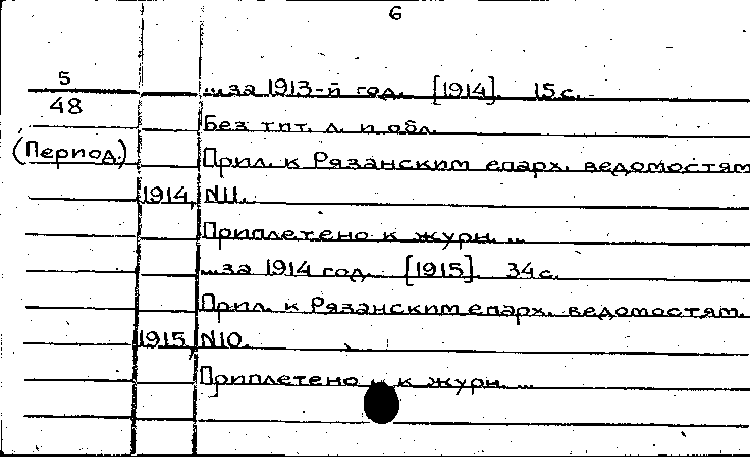 6
5
...за 1913-й год. [1914]. 15 с.
48
Без тит. л. и обл.
(Период.)
Прил. к Рязанским епарх. ведомостям
1914, N11.
Приплетено к журн. ...
...за 1914 год. [1915]. 34 с.
Прил. к Рязанским епарх. ведомостям.
1915, N10.
Приплетено к журн. ...